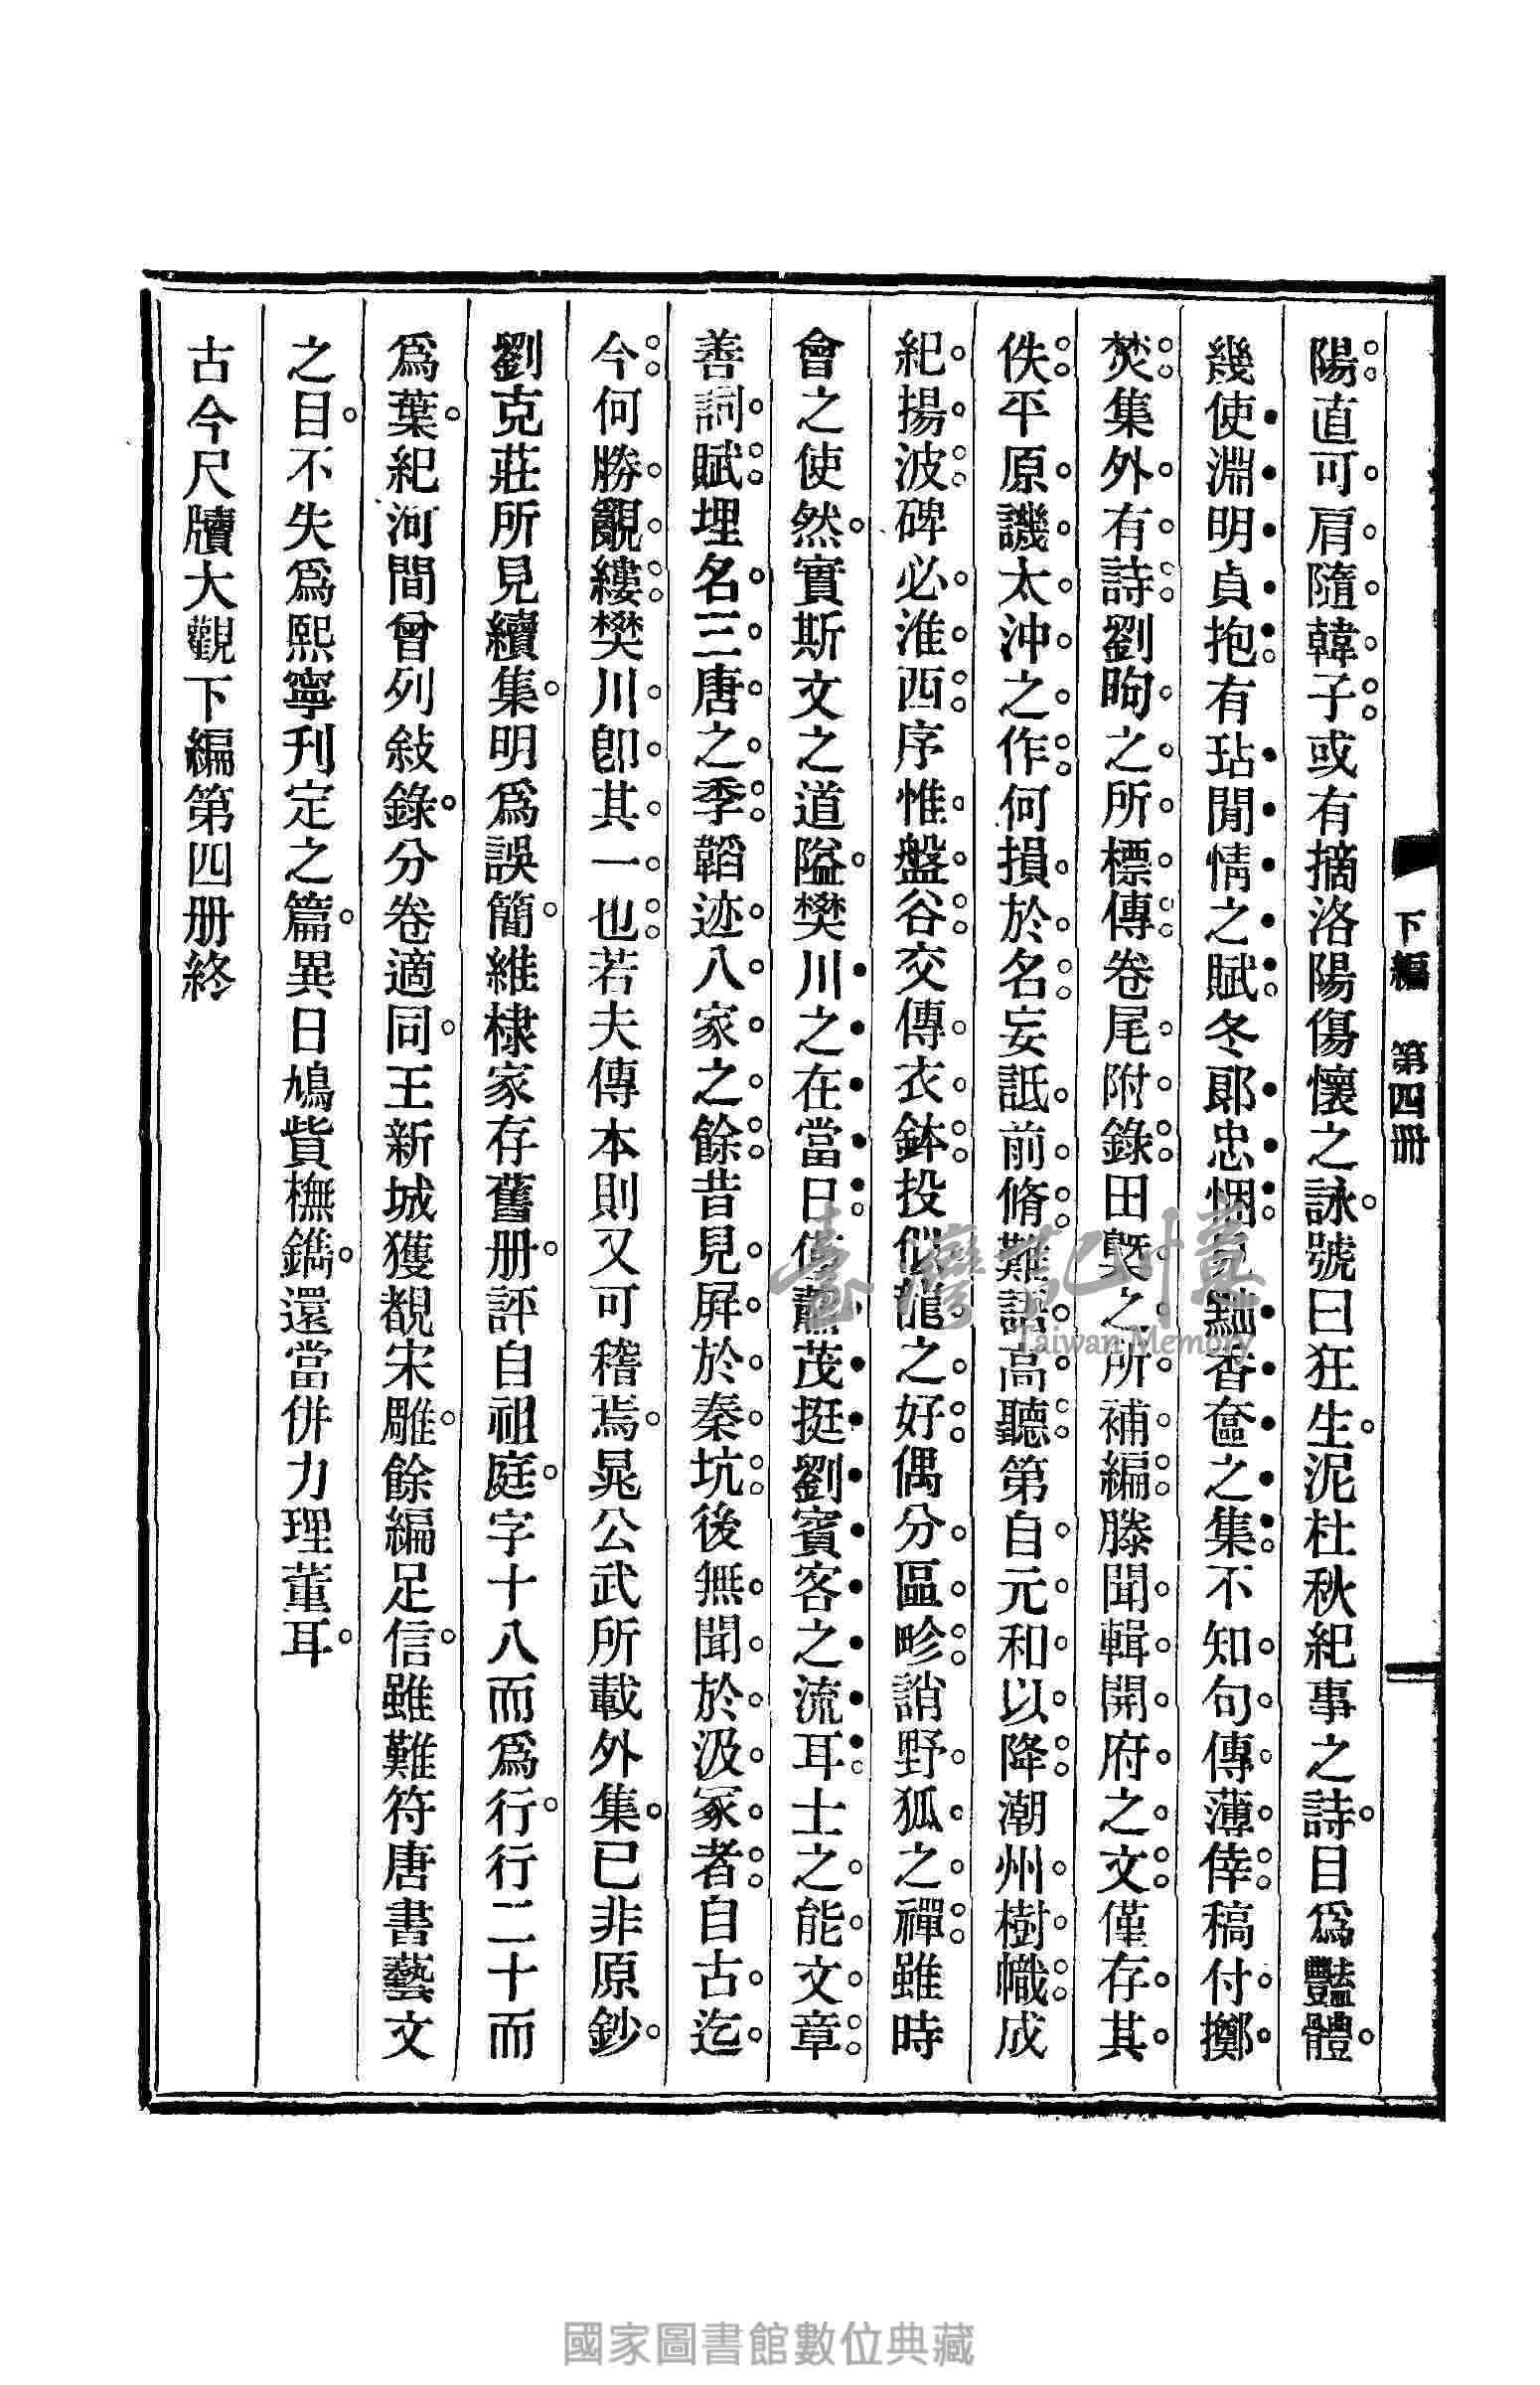 下編　第四冊
陽直可肩隨韓子或有摘洛陽傷懷之詠號曰狂生泥杜秋紀事之詩目爲豔體
幾使淵明貞抱有玷閒情之賦冬郎忠悃見黜香奩之集不知句傳薄倖稿付擲
焚集外有詩劉昫之所標傳卷尾附錄田槩之所補編滕聞輯開府之文僅存其
佚平原譏太沖之作何損於名妄詆前脩難語高聽第自元和以降潮州樹幟成
紀揚波碑必淮西序惟盤谷交傳衣鉢投似龍之好偶分區畛誚野狐之禪雖時
會之使然實斯文之道隘樊川之在當日僅蕭茂挺劉賓客之流耳士之能文章
善詞賦埋名三唐之季韜迹八家之餘昔見屛於秦坑後無聞於汲冢者自古迄
今何勝覼縷樊川卽其一也若夫傳本則又可稽焉晁公武所載外集已非原鈔
劉克莊所見續集明爲誤簡維棣家存舊册評自祖庭字十八而爲行行二十而
爲葉紀河間曾列敍錄分卷適同王新城獲覩宋雕餘編足信雖難符唐書藝文
之目不失爲熙寧刋定之篇異日鳩貲橅鐫還當併力理董耳
古今尺牘大觀下編第四册終
臺灣記憶
Taiwan Memory
國家圖書館數位典藏